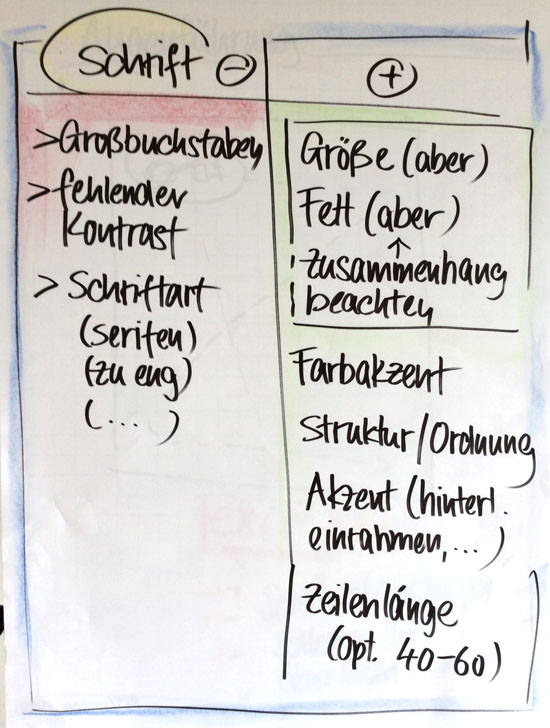 Schrift ⊖
> Großbuchstaben
> fehlender
Kontrast
> Schriftart
(serifen)
(zu eng)
(...)
⊕
Größe (aber)
Fett (aber)
↑
Zusammenhang
beachten
Farbakzent
Struktur/Ordnung
Akzent (hinterl.
einrahmen,...)
Zeilenlänge
(opt. 40-60)